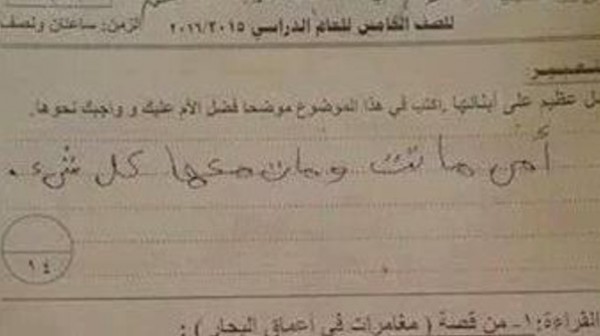 للصف الخامس للعام الدراسي ٢٠١٦/٢٠١٥ الزمن: ساعتان ونصف
عظيم على أبنائها .اكتب في هذا الموضوع موضحا فضل الأم عليك و واجبك نحوها.
أمي ماتت ومات معها كل شيء.
١٤
القراءة:١- من قصة ( مغامرات في أعماق البحار ) :